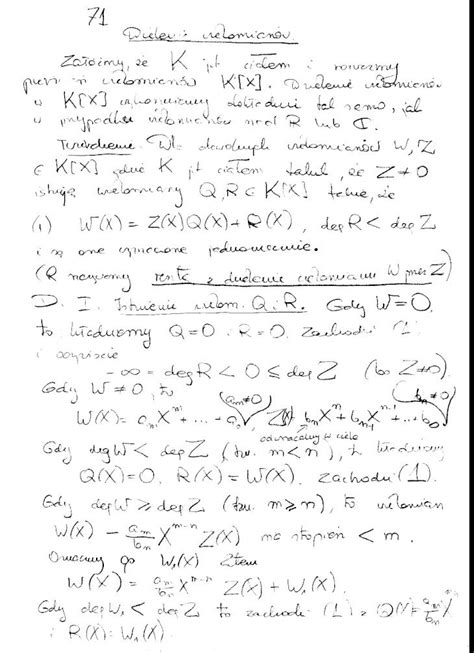 71
Dzielenie wielomianów.
Załóżmy, że K jest ciałem i rozważmy
pierścień wielomianów K[X]. Dzielenie wielomianów
w K[X] wykonujemy dokładnie tak samo, jak
w przypadku wielomianów nad R lub C.
Twierdzenie. Dla dowolnych wielomianów W, Z
∈ K[X] gdzie K jest ciałem takich, że Z ≠ 0
istnieją wielomiany Q, R ∈ K[X] takie, że
(1) W(X) = Z(X)Q(X) + R(X), deg R < deg Z
i są one wyznaczone jednoznacznie.
(R nazywamy resztą z dzielenia wielomianu W przez Z)
D. I. Istnienie wielom. Q i R. Gdy W = 0,
to kładziemy Q = 0 i R = 0. Zachodzi (1)
i oczywiście
-∞ = deg R < 0 ≤ deg Z (bo Z ≠ 0).
Gdy W ≠ 0, to
W(X) = a_m X^m + ... + a_0, (a_m ≠ 0) Z(X) = b_n X^n + b_{n-1} X^{n-1} + ... + b_0 (b_n ≠ 0)
odwracalny w ciele
Gdy deg W < deg Z (tzn. m < n), to kładziemy
Q(X) = 0, R(X) = W(X). Zachodzi (1).
Gdy deg W ≥ deg Z (tzn. m ≥ n), to wielomian
W(X) - a_m/b_n X^{m-n} Z(X) ma stopień < m.
Oznaczmy go W₁(X). Zatem
W(X) = a_m/b_n X^{m-n} Z(X) + W₁(X).
Gdy deg W₁ < deg Z to zachodzi (1) z Q(X) = a_m/b_n X
i R(X) = W₁(X).